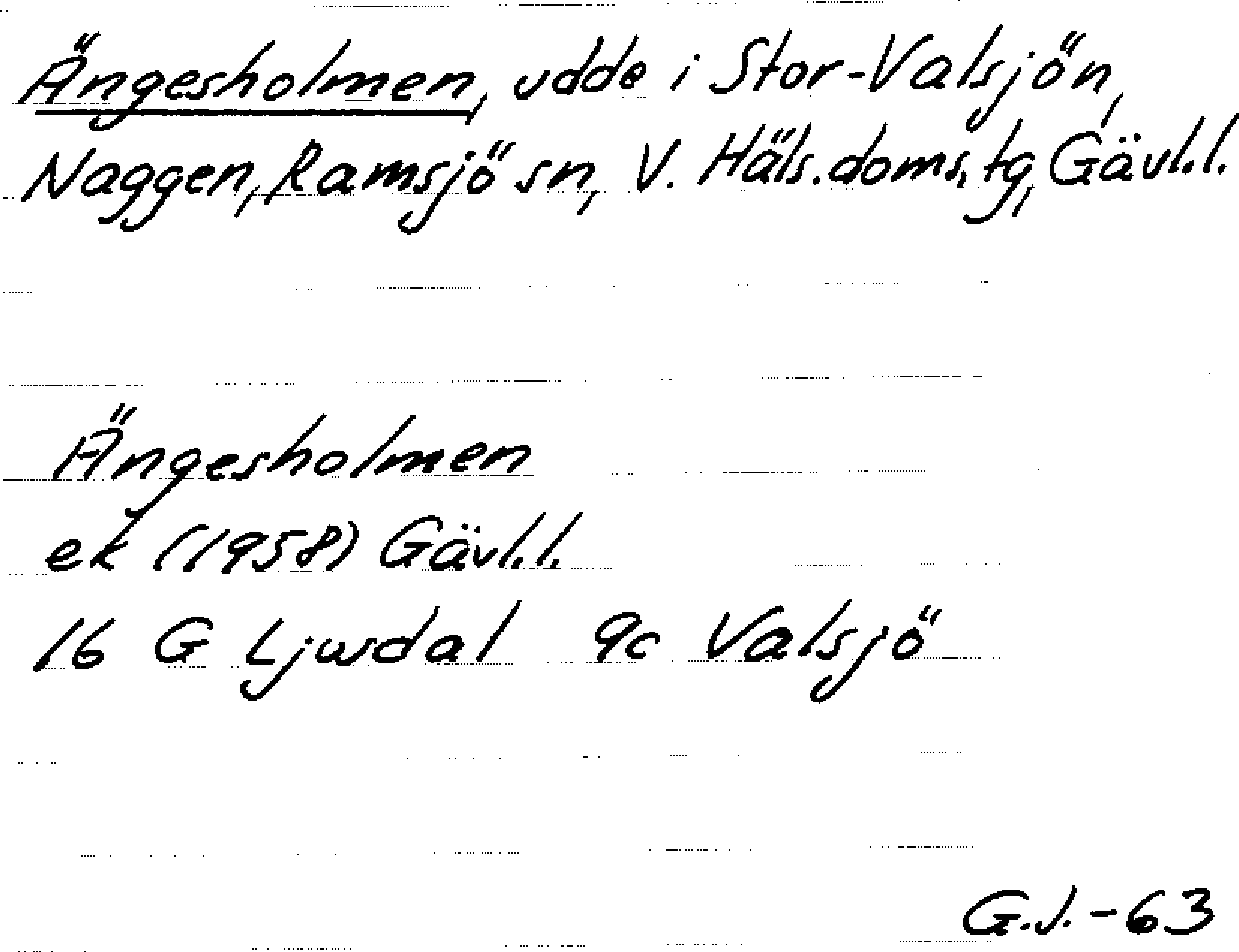 Ängesholmen, udde i Stor-Valsjön,
Naggen, Ramsjö sn, V. Häls. doms. tg, Gävl.l.
Ängesholmen
ek (1958) Gävl.l.
16 G Ljusdal 9c Valsjö
G.J.-63